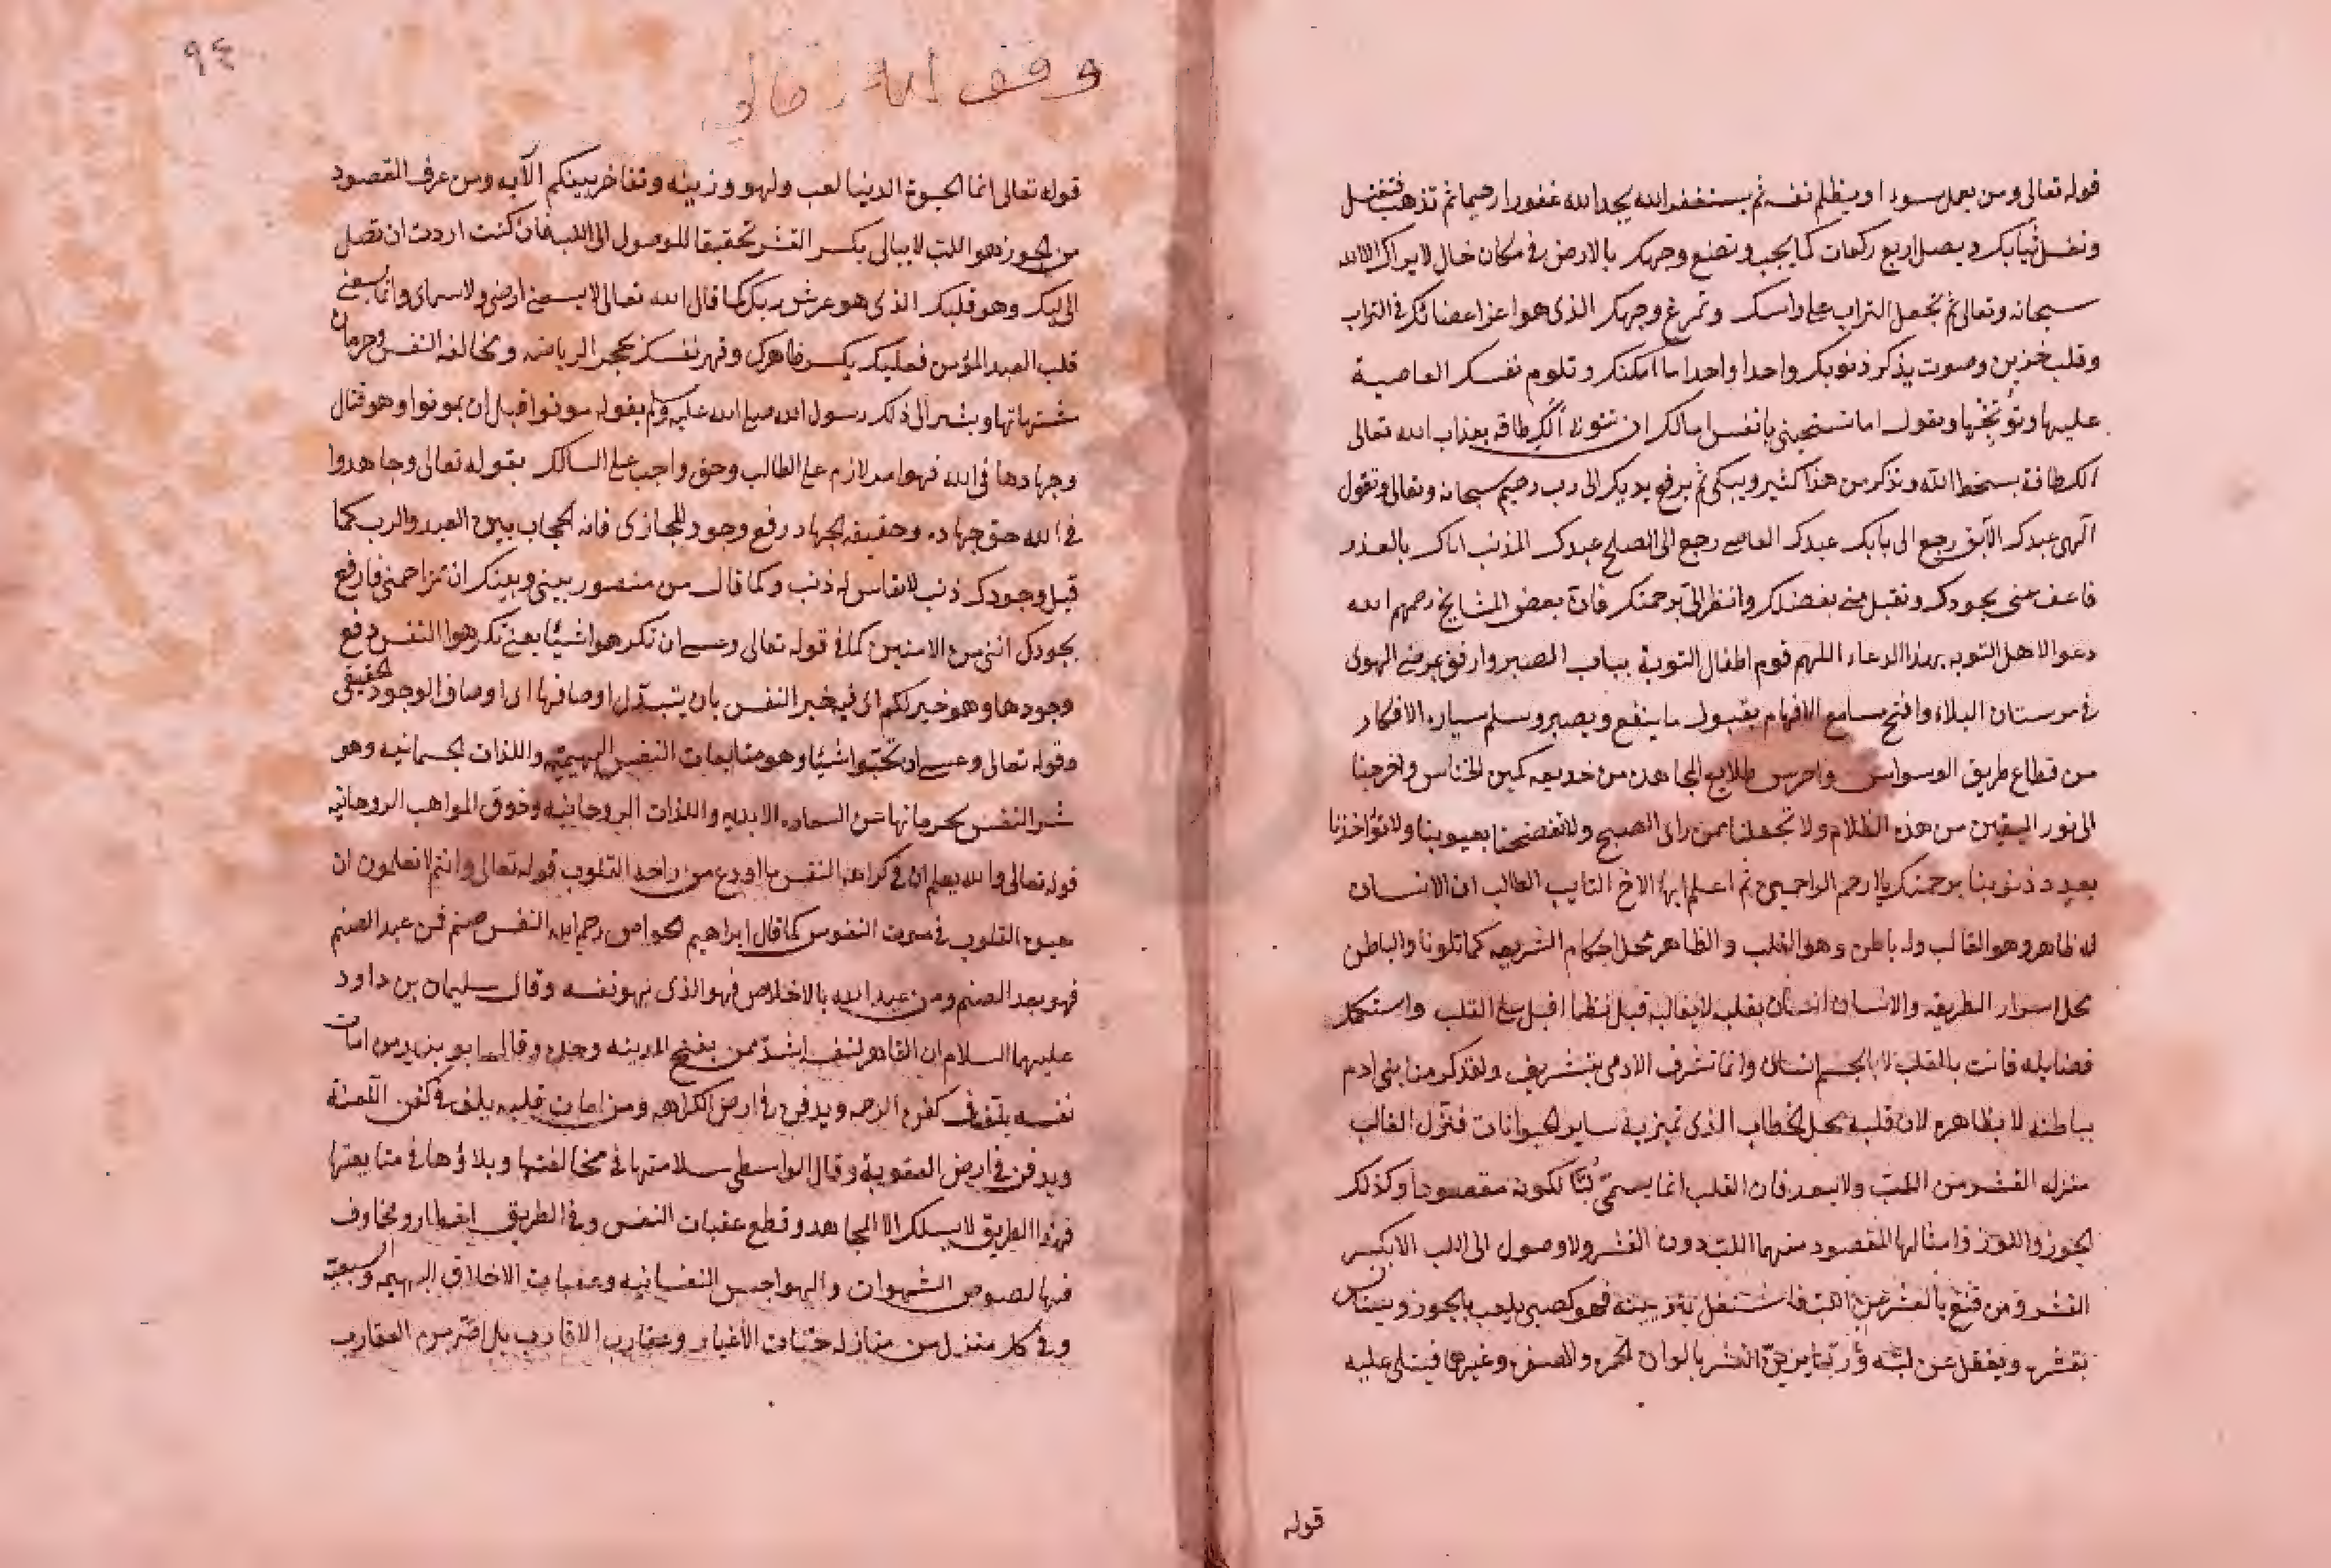 قوله تعالى ومن يعمل سوءا او يظلم نفسه ثم يستغفر الله يجد الله غفورا رحيما ثم تذهب فتغتسل
وتغسل ثيابك ويصلى اربع ركعات كما يجب وتضع وجهك بالارض في مكان خال لا يراك الا الله
سبحانه وتعالى ثم تجعل التراب على راسك وتمرغ وجهك الذى هو اعز اعضائك فى التراب
وقلب حزين وصوت يذكر ذنوبك واحدا واحدا ما امكنك وتلوم نفسك العاصية
عليها وتوبخها وتقول اما تستحيى يا نفس اما لك ان تتوبى ألك طاقة بعذاب الله تعالى
الك طاقة بسخط الله وتذكر من هذا كثير ويبكى ثم يرفع يديك الى رب رحيم سبحانه وتعالى وتقول
الهى عبدك الآبق رجع الى بابك عبدك العاصى رجع الى الصلح عبدك المذنب اتاك بالعذر
فاعف عنى بجودك وتقبل منى بفضلك وانظر الى برحمتك فان بعض المشايخ رحمهم الله
دعوا لاهل التوبه بهذا الدعاء اللهم قوم اطفال التوبة بباب الصبر وارفق بمرضى الهوى
فى مرستان البلاء وافتح مسامع الافهام بقبول ما ينفع وبصبر وسلم سياره الافكار
من قطاع طريق الوسواس واحرس طلايع المجاهده من خديعه كمين الخناس واخرجنا
الى نور اليقين من هذه الظلام ولا تجعلنا ممن راى الصبح ولا تفضحنا بعيوبنا ولا تؤاخذنا
بعدد ذنوبنا برحمتك يا ارحم الراحمين ثم اعلم ايها الاخ التايب الطالب ان الانسان
له ظاهر وهو القالب وله باطن وهو القلب والظاهر محل احكام الشريعه كما تلونا والباطن
محل اسرار الطريقه والانسان انسان بقلبه لا بقالبه قيل نظما اقبل على القلب واستكمل
فضايله فانت بالقلب لا بالجسم انسان وانما تشرف الادمى بتشريف ولقد كرمنا بنى ادم
بباطنه لا بظاهره لان قلبه محل الخطاب الذى تميز به ساير الحيوانات فنزل القالب
منزله القشر من اللب ولا يبعد فان القلب انما يسمى لبا لكونه مقصودا وكذلك
الجوز واللوز وامثالها المقصود منهما اللب دون القشر ولا وصول الى اللب الا بكسر
القشر ومن قنع بالقشر عن اللب فاشتغل بتزيينه فهو كصبى يلعب بالجوز
بقشره ويغفل عن لبه وربما يزين القشر بالوان الحمره والاصفر وغيرها فيتلى عليه
قوله
٩٤
وقف الله تعالى
قوله تعالى انما الحيوة الدنيا لعب ولهو وزينه وتفاخر بينكم الآيه ومن عرف المقصود
من الجوز هو اللب لا يبالى بكسر القشر تحقيقا للوصول الى اللب فان كنت اردت ان تصل
الى لبك وهو قلبك الذى هو عرش ربك كما قال الله تعالى لا يسعنى ارضى ولا سماى وانما يسعنى
قلب العبد المؤمن فعليك بكسر ظاهرك وقهر نفسك بحجر الرياضه ومخالفه النفس وحرمان
مشتهياتها ويشير الى ذلك رسول الله صلى الله عليه وسلم بقوله موتوا قبل ان تموتوا وهو قتال
وجهادها فى الله فهو امر لازم على الطالب وحق واجب على السالك بقوله تعالى وجاهدوا
فى الله حق جهاده وحقيقه الجهاد رفع وجود المجازى فانه الحجاب بين العبد والرب كما
قيل وجودك ذنب لا يقاس له ذنب وكما قال من منصور بينى وبينك انى تزاحمنى فارفع
بجودك اننى من الامنين كما فى قوله تعالى وعسى ان تكرهوا شيئا يعنى تكرهوا النفس رفع
وجودها وهو خير لكم اى فيه خير النفس بان يتبدل اوصافها الى اوصاف الوجود الحقيقى
وقوله تعالى وعسى ان تحبوا شيئا وهو متابعات النفس البهيميه واللذات الجسمانيه وهو
شر النفس بحرمانها عن السعاده الابديه واللذات الروحانيه وذوق المواهب الروحانيه
قوله تعالى والله يعلم ان فى كراهه النفس ما اودع من راحه القلوب قوله تعالى وانتم لا تعلمون ان
حيوة القلوب فى موت النفوس كما قال ابراهيم الخواص رحمه الله النفس صنم فمن عبد الصنم
فهو يعبد الصنم ومن عبد الله بالاخلاص فهو الذى قهر نفسه وقال سليمان بن داود
عليهما السلام ان القاهر لنفسه اشد ممن يفتح المدينه وحده وقال ابو يزيد من امات
نفسه يلف فى كفن الرحمه ويدفن فى ارض الكرامه ومن امات قلبه يلف فى كفن اللعنة
ويدفن فى ارض العقوبة وقال الواسطى سلامتها فى مخالفتها وبلاؤها فى متابعتها
فهذا الطريق لا يسلك الا المجاهد وقطع عقبات النفس وفى الطريق اخطار ومخاوف
فيها لصوص الشهوات والهواجس النفسانيه وعقبات الاخلاق البهيميه والسبعية
وفى كل منزل من منازله حيات الأغيار وعقارب الاقارب بل اضر من العقارب